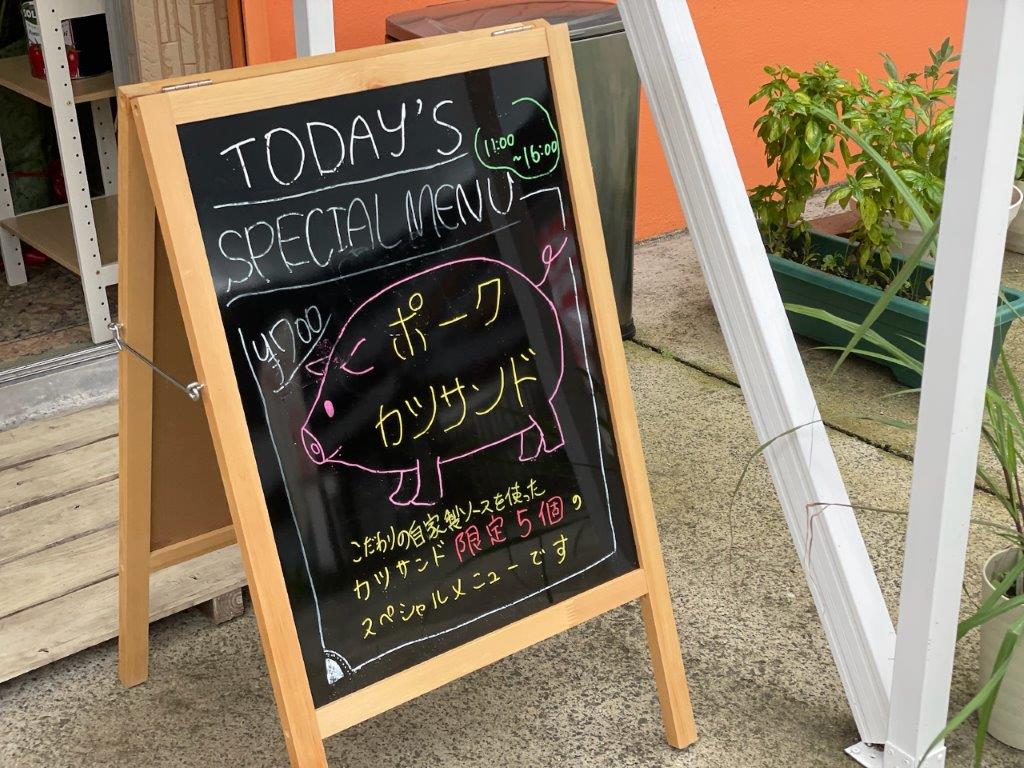 TODAY'S
11:00
~16:00
SPECIAL MENU
¥700
ポーク
カツサンド
こだわりの自家製ソースを使った
カツサンド 限定5個の
スペシャルメニューです